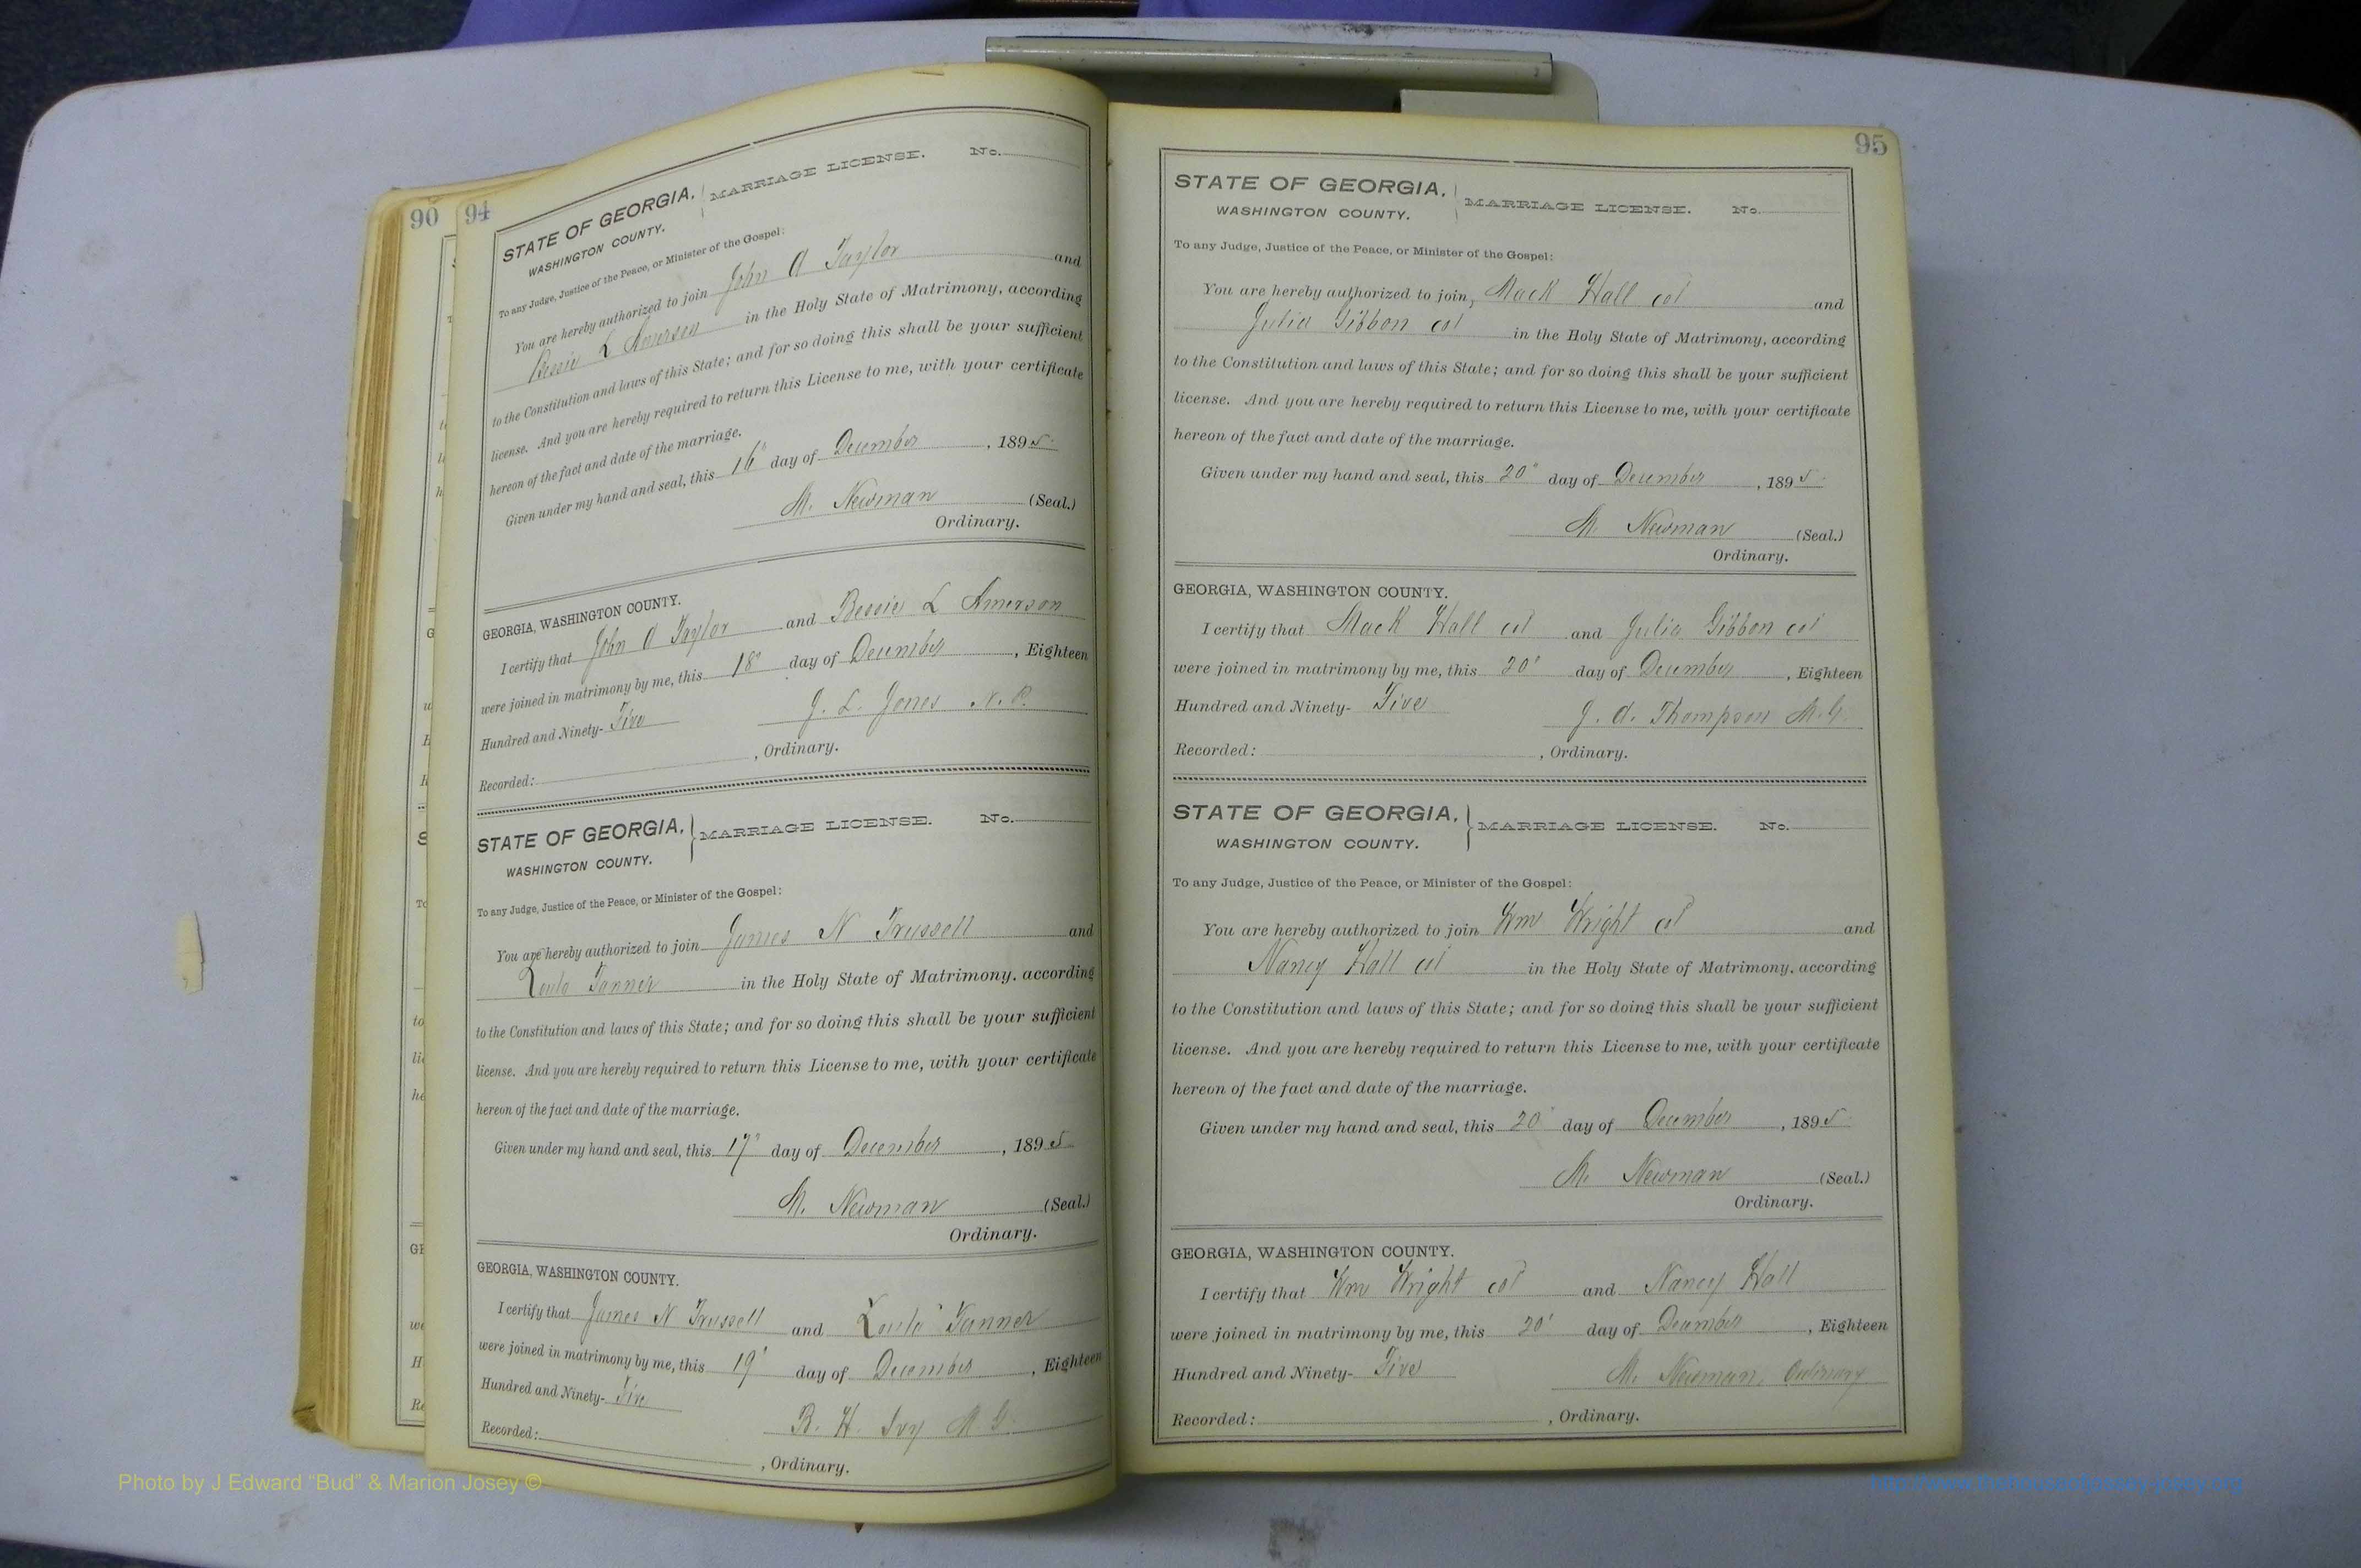 90
94
STATE OF GEORGIA, MARRIAGE LICENSE. No.
WASHINGTON COUNTY.
To any Judge, Justice of the Peace, or Minister of the Gospel:
You are hereby authorized to join John A Taylor and
Bessie L Amerson in the Holy State of Matrimony, according
to the Constitution and laws of this State; and for so doing this shall be your sufficient
license. And you are hereby required to return this License to me, with your certificate
hereon of the fact and date of the marriage.
Given under my hand and seal, this 16" day of December, 1895.
M. Newman (Seal.)
Ordinary.
GEORGIA, WASHINGTON COUNTY.
I certify that John A Taylor and Bessie L Amerson
were joined in matrimony by me, this 18" day of December, Eighteen
Hundred and Ninety- Five J. L. Jones N. P.
Recorded: , Ordinary.
STATE OF GEORGIA, MARRIAGE LICENSE. No.
WASHINGTON COUNTY.
To any Judge, Justice of the Peace, or Minister of the Gospel:
You are hereby authorized to join James N Trussell and
Loula Tanner in the Holy State of Matrimony, according
to the Constitution and laws of this State; and for so doing this shall be your sufficient
license. And you are hereby required to return this License to me, with your certificate
hereon of the fact and date of the marriage.
Given under my hand and seal, this 17" day of December, 1895
M. Newman (Seal.)
Ordinary.
GEORGIA, WASHINGTON COUNTY.
I certify that James N Trussell and Loula Tanner
were joined in matrimony by me, this 19" day of December, Eighteen
Hundred and Ninety- Five B. H. Ivy M G.
Recorded: , Ordinary.
95
STATE OF GEORGIA, MARRIAGE LICENSE. No.
WASHINGTON COUNTY.
To any Judge, Justice of the Peace, or Minister of the Gospel:
You are hereby authorized to join, Mack Hall col and
Julia Gibbon col in the Holy State of Matrimony, according
to the Constitution and laws of this State; and for so doing this shall be your sufficient
license. And you are hereby required to return this License to me, with your certificate
hereon of the fact and date of the marriage.
Given under my hand and seal, this 20" day of December, 1895.
M. Newman (Seal.)
Ordinary.
GEORGIA, WASHINGTON COUNTY.
I certify that Mack Hall col and Julia Gibbon col
were joined in matrimony by me, this 20' day of December, Eighteen
Hundred and Ninety- Five J. A. Thompson M. G.
Recorded: , Ordinary.
STATE OF GEORGIA, MARRIAGE LICENSE. No.
WASHINGTON COUNTY.
To any Judge, Justice of the Peace, or Minister of the Gospel:
You are hereby authorized to join Wm Wright col and
Nancy Hall col in the Holy State of Matrimony, according
to the Constitution and laws of this State; and for so doing this shall be your sufficient
license. And you are hereby required to return this License to me, with your certificate
hereon of the fact and date of the marriage.
Given under my hand and seal, this 20" day of December, 1895.
M. Newman (Seal.)
Ordinary.
GEORGIA, WASHINGTON COUNTY.
I certify that Wm Wright col and Nancy Hall
were joined in matrimony by me, this 20' day of December, Eighteen
Hundred and Ninety- Five M. Newman, Ordinary
Recorded: , Ordinary.
Photo by J Edward "Bud" & Marion Josey ©